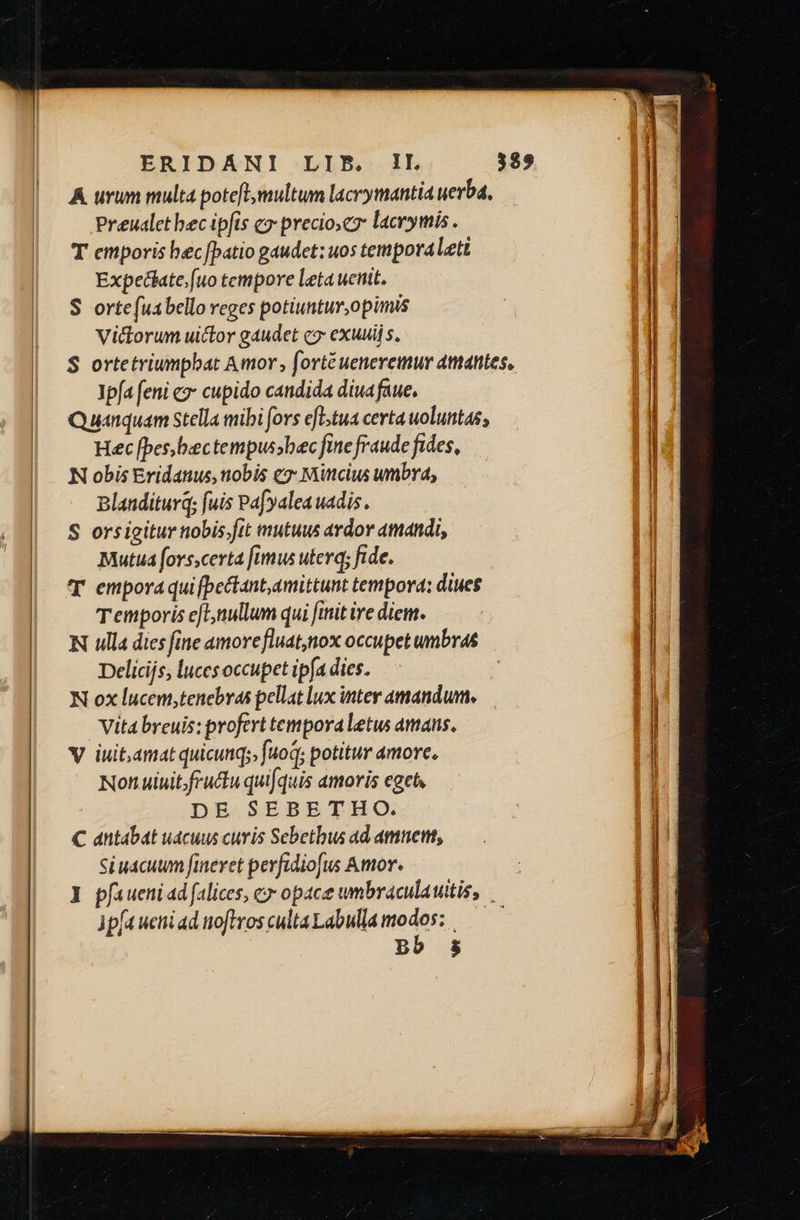 ERIDANI LIB. II. 389
A urum multa poteſt, multum lacrymantia uerba,
Præualet hæc ipſis & precio, & lacrymis.
T emporis hæc ſpatio gaudet: uos tempora læti
Expectate, ſuo tempore læta uenit.
S orte ſua bello reges potiuntur, opimis
Victorum uictor gaudet & exuuijs.
S orte triumphat Amor, ſortē ueneremur amantes,
Ipſa ſeni & cupido candida diua faue.
Q uanquam Stella mihi ſors eſt, tua certa uoluntas,
Hæc ſpes, hæc tempus, hæc ſine fraude fides,
N obis Eridanus, nobis & Mincius umbra,
Blanditurq; ſuis Paſyalea uadis.
S ors igitur nobis, ſit mutuus ardor amandi,
Mutua ſors, certa ſimus uterq; fide.
T empora qui ſpectant, amittunt tempora: diues
Temporis eſt, nullum qui ſinit ire diem.
N ulla dies ſine amore fluat, nox occupet umbras
Delicijs, luces occupet ipſa dies.
N ox lucem, tenebras pellat lux inter amandum.
Vita breuis: profert tempora lætus amans.
V iuit, amat quicunq;, ſuoq; potitur amore.
Non uiuit, fructu quiſquis amoris eget.
DE SEBETHO.
C antabat uacuus curis Sebethus ad amnem,
Si uacuum ſineret perfidioſus Amor.
I pſa ueni ad ſalices, & opacæ umbracula uitis,
Ipſa ueni ad noſtros culta Labulla modos:
Bb 5